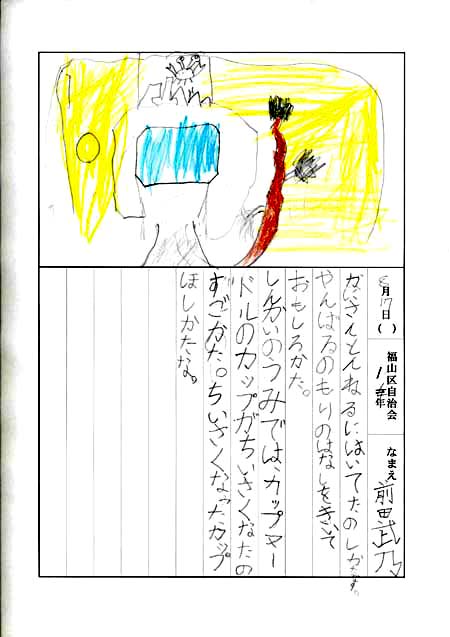 8月17日( )
福山区自治会
1年
なまえ 前田武乃
がじさんとんねるにはいてたのしかた。
やんばるのもりのはなしをきいて
おもしろかた。
しんかいのうみでは、カップヌー
ドルのカップがちいさくなたの
すごかた。ちいさくなたカップ
ほしかたな。